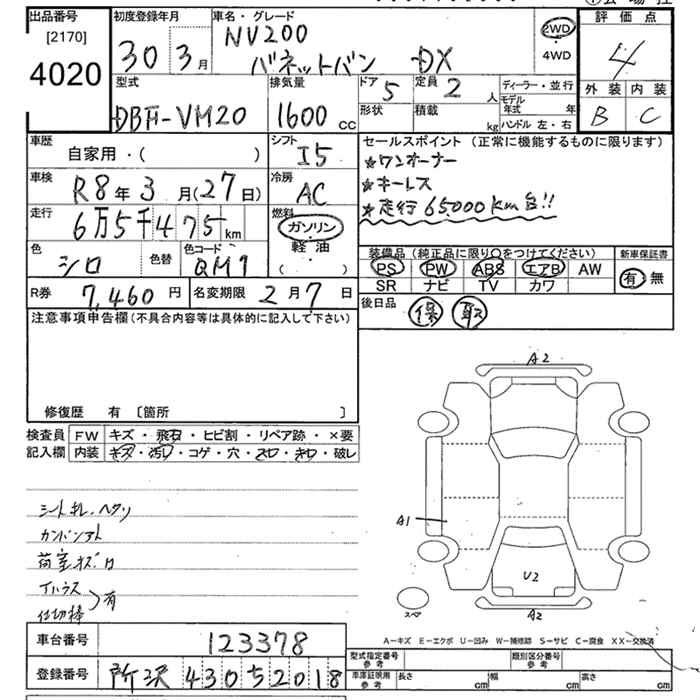 出品番号
[2170]
4020
初度登録年月
30 3月
車名・グレード
NV200
バネットバン DX
2WD
・
4WD
評価点
4
外装 内装
B C
型式
DBF-VM20
排気量
1600 cc
ドア 5
形状
定員 2 人
積載 kg
ディーラー・並行
モデル年式 年
ハンドル 左・右
車歴
自家用・( )
シフト
I5
セールスポイント (正常に機能するものに限ります)
★ワンオーナー
★キーレス
★走行65,000km台!!
車検
R8年3月(27日)
冷房
AC
走行
6万5千475km
燃料
ガソリン
・
軽油
( )
色
シロ
色替
色コード
QM1
装備品 (純正品に限り○をつけてください)
PS PW ABS エアB AW
SR ナビ TV カワ
新車保証書
有・無
R券 7,460円
名変期限 2月7日
後日品 保 取
注意事項申告欄(不具合内容等は具体的に記入して下さい)
修復歴 有 〔箇所 〕
検査員記入欄
FW キズ・飛石・ヒビ割・リペア跡・×要
内装 キズ・汚レ・コゲ・穴・スレ・キレ・破レ
シートキレ、ヘタリ
荷室キズ
有
仕切棒
A2
A1
U2
A2
スペア
A-キズ E-エクボ U-凹み W-補修跡 S-サビ C-腐食 XX-交換済
車台番号 123378
登録番号 所沢 430 5 2018
型式指定番号 参考
類別区分番号 参考
車庫証明用 参考
長さ cm
幅 cm
高さ cm